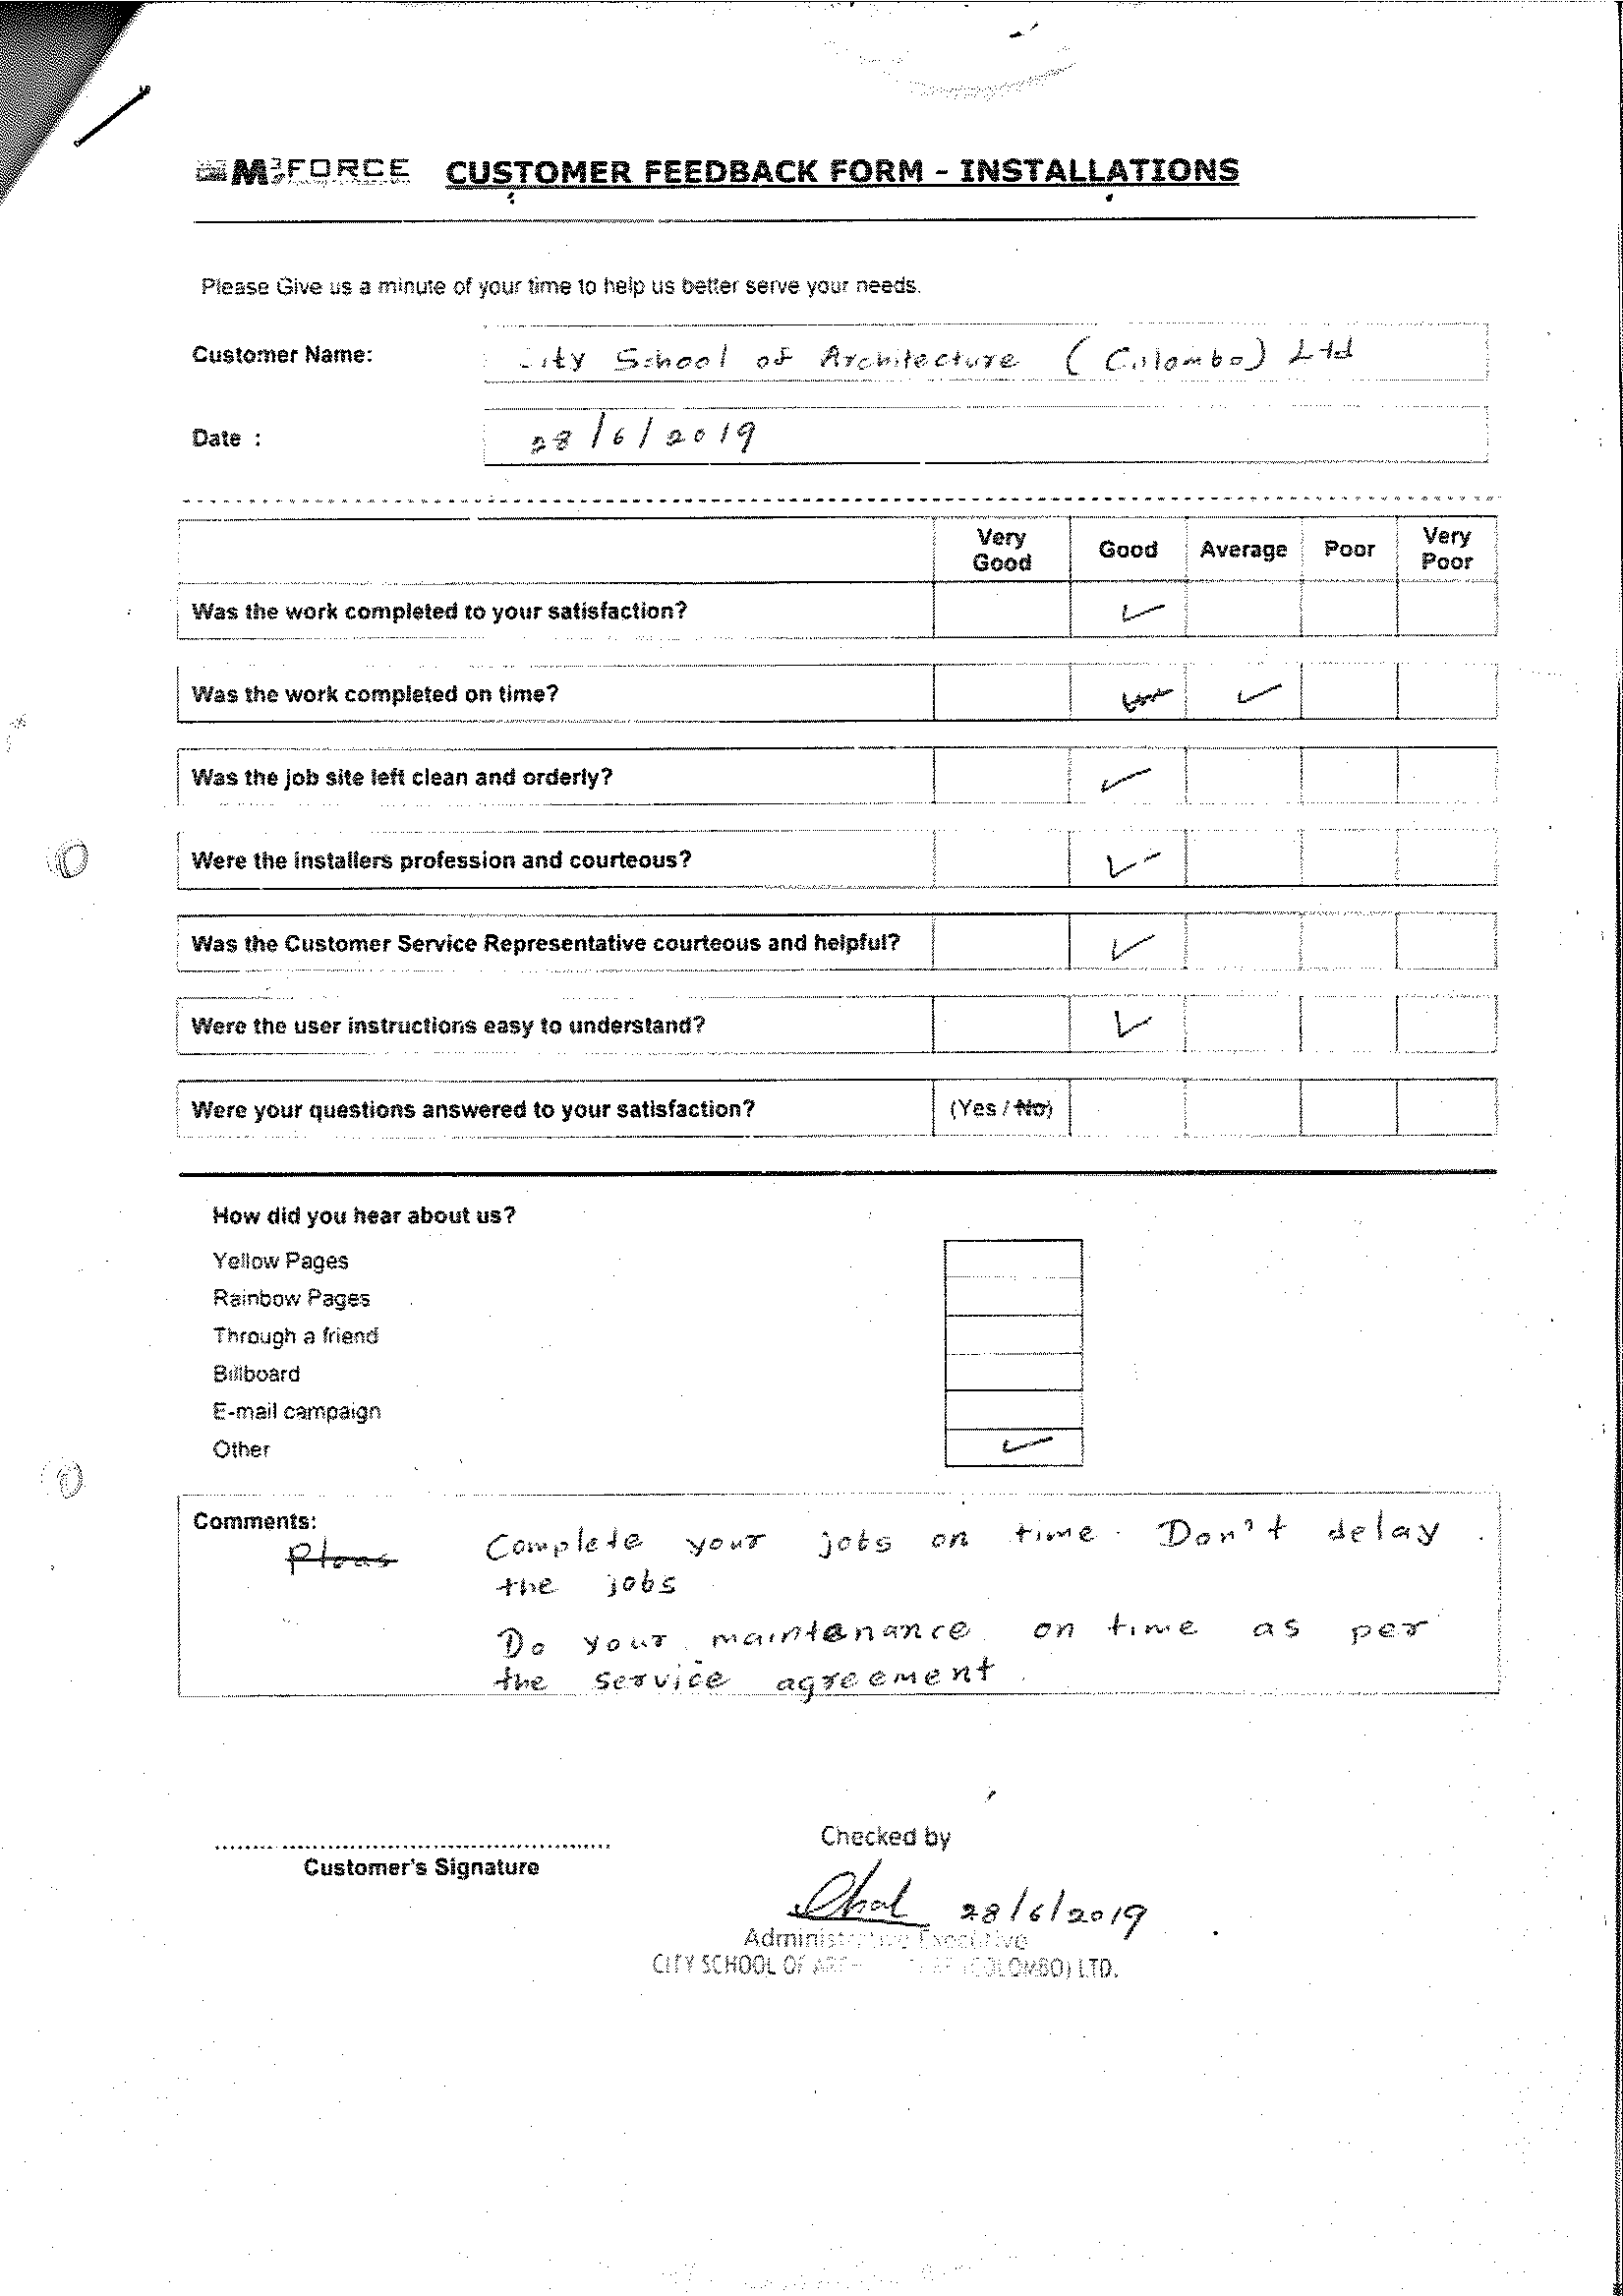 M3FORCE CUSTOMER FEEDBACK FORM - INSTALLATIONS
Please Give us a minute of your time to help us better serve your needs.
Customer Name: City School of Architecture (Colombo) Ltd
Date : 28/6/2019
Very Good Good Average Poor Very Poor
Was the work completed to your satisfaction? ✓
Was the work completed on time? ✓
Was the job site left clean and orderly? ✓
Were the installers profession and courteous? ✓
Was the Customer Service Representative courteous and helpful? ✓
Were the user instructions easy to understand? ✓
Were your questions answered to your satisfaction? (Yes / No)
How did you hear about us?
Yellow Pages
Rainbow Pages
Through a friend
Billboard
E-mail campaign
Other ✓
Comments:
Pleas Complete your jobs on time. Don't delay
the jobs
Do your maintenance on time as per
the service agreement.
Customer's Signature
Checked by
28/6/2019
Administrative Executive
CITY SCHOOL OF ARCHITECTURE (COLOMBO) LTD.